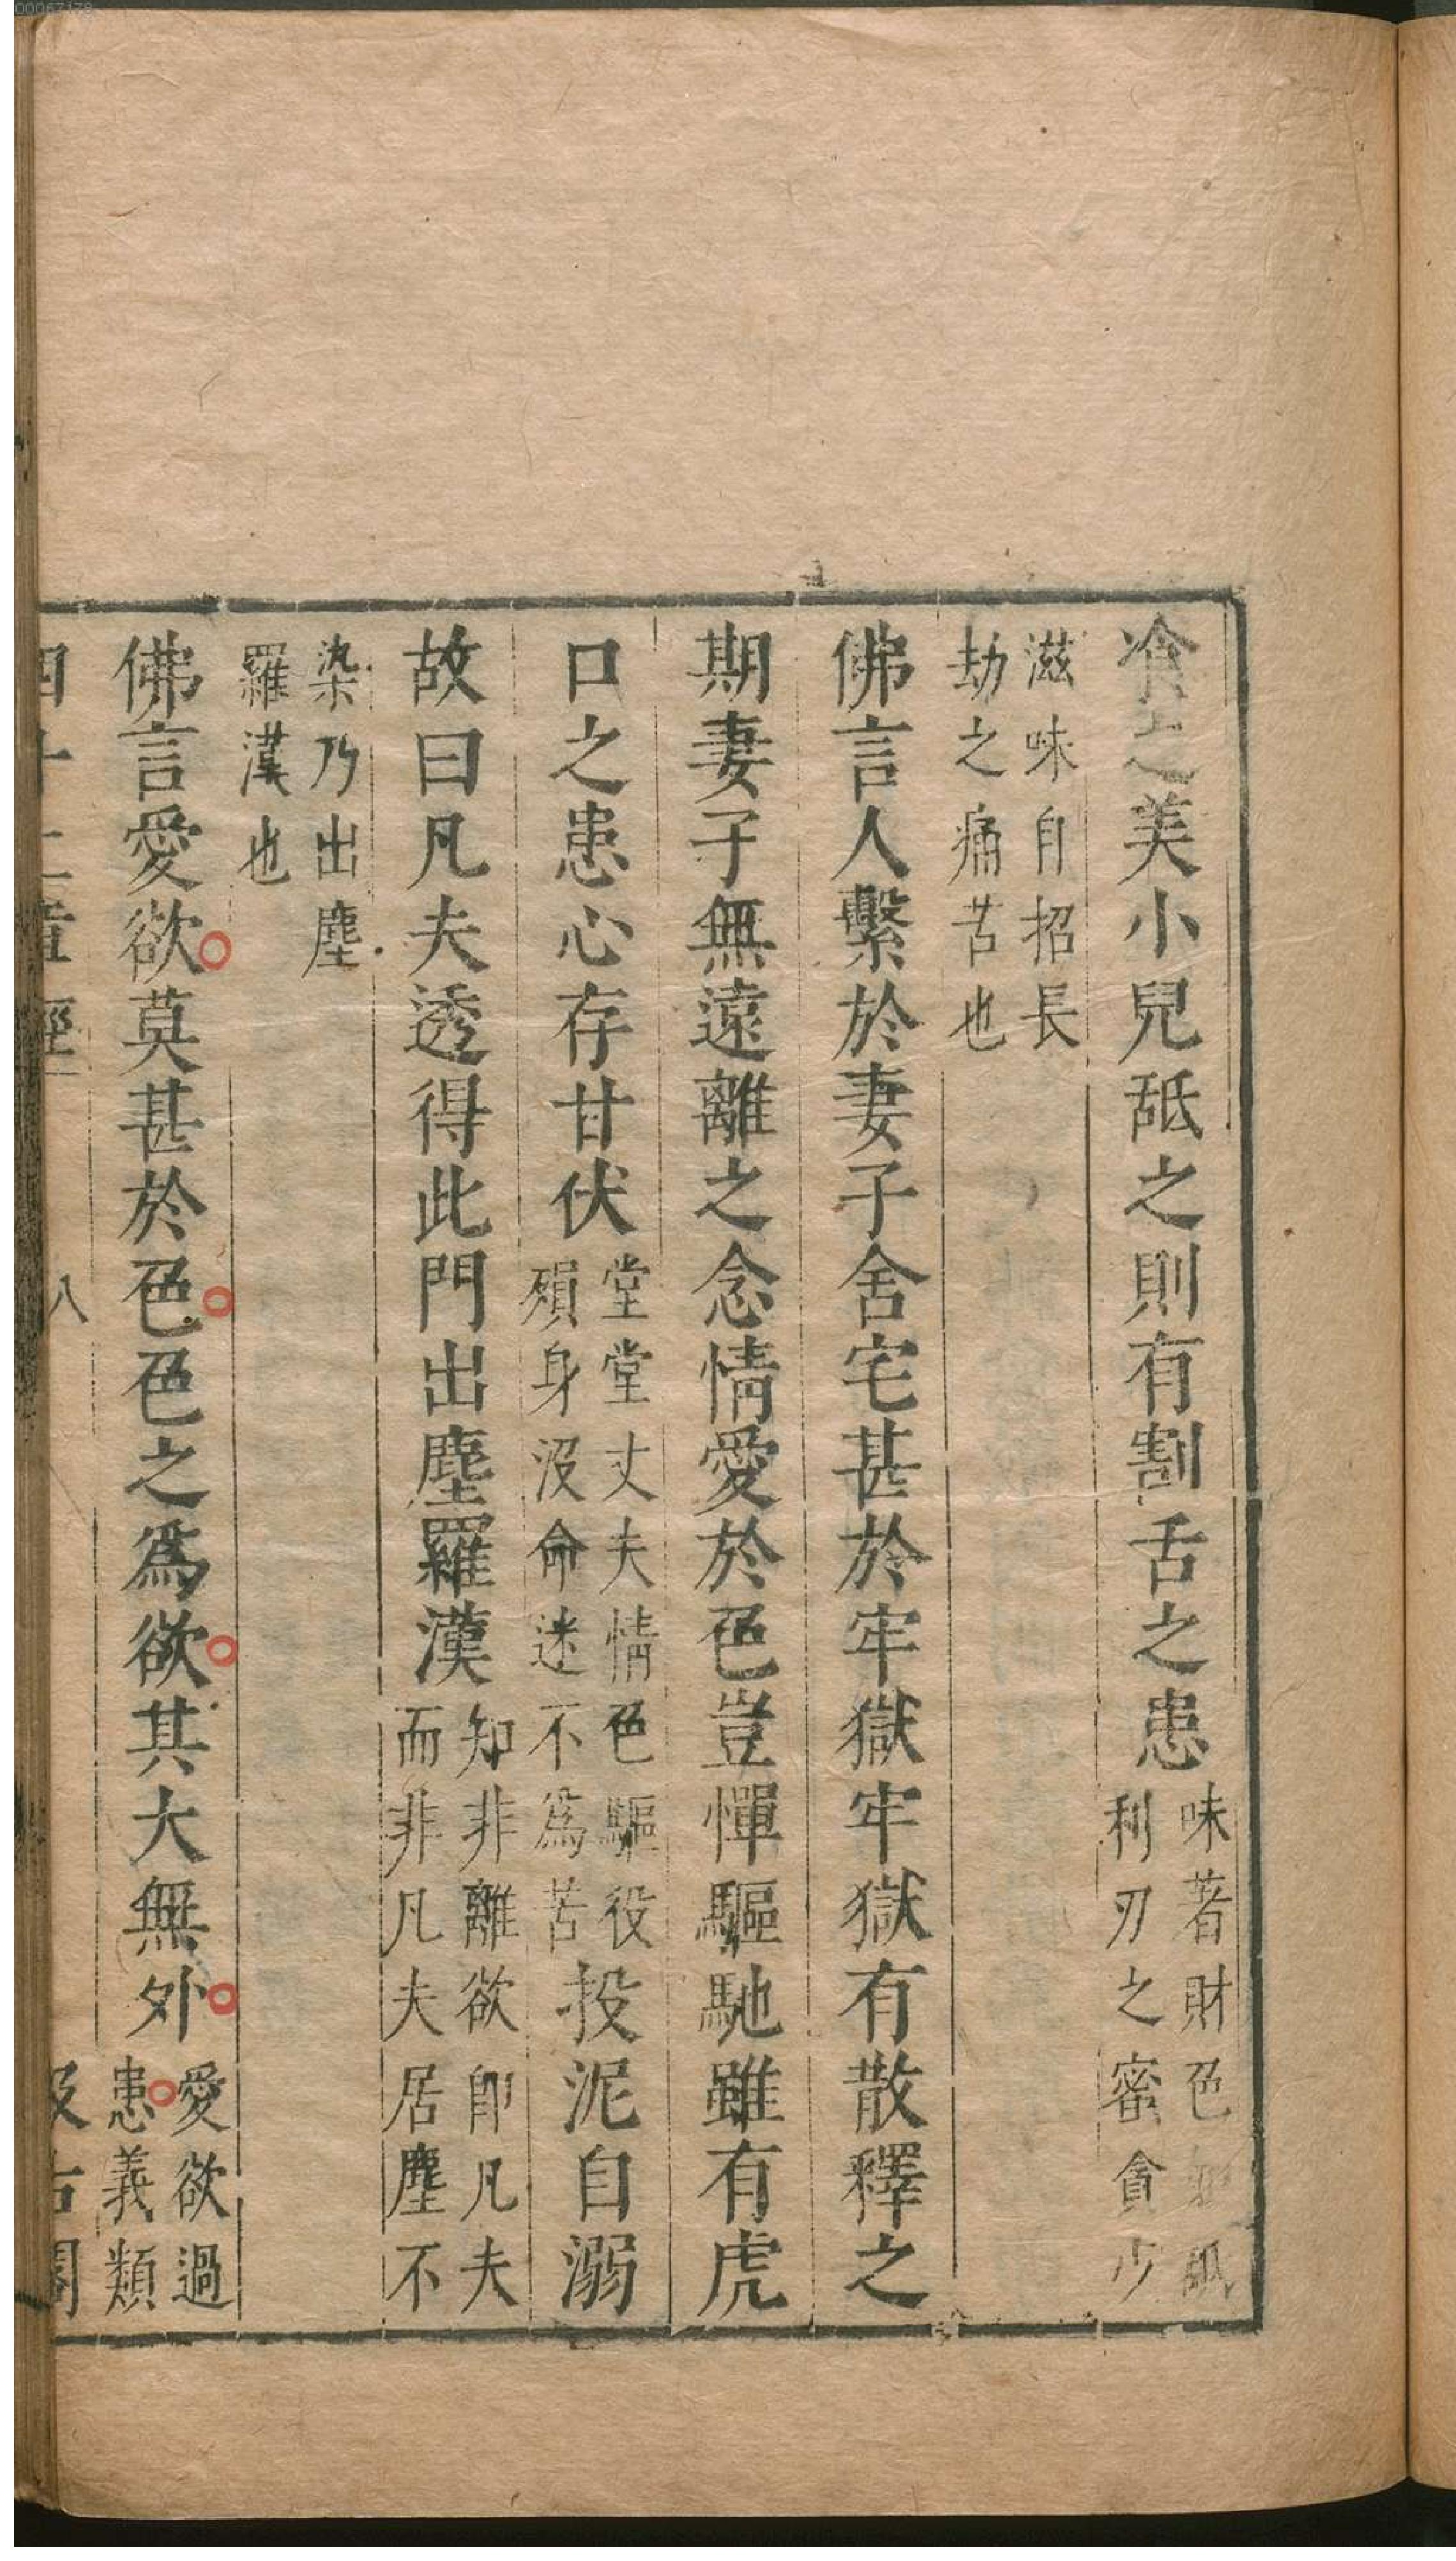 00067178
飡之美小兒舐之則有割舌之患味著財色如舐利刃之蜜貪少
滋味自招長劫之痛苦也
佛言人繫於妻子舍宅甚於牢獄牢獄有散釋之
期妻子無遠離之念情愛於色豈憚驅馳雖有虎
口之患心存甘伏堂堂丈夫情色驅役殞身沒命迷不爲苦投泥自溺
故曰凡夫透得此門出塵羅漢知非離欲卽凡夫而非凡夫居塵不
染乃出塵羅漢也
佛言愛欲莫甚於色色之爲欲其大無外愛欲過患義類
四十二章經 八 汲古閣